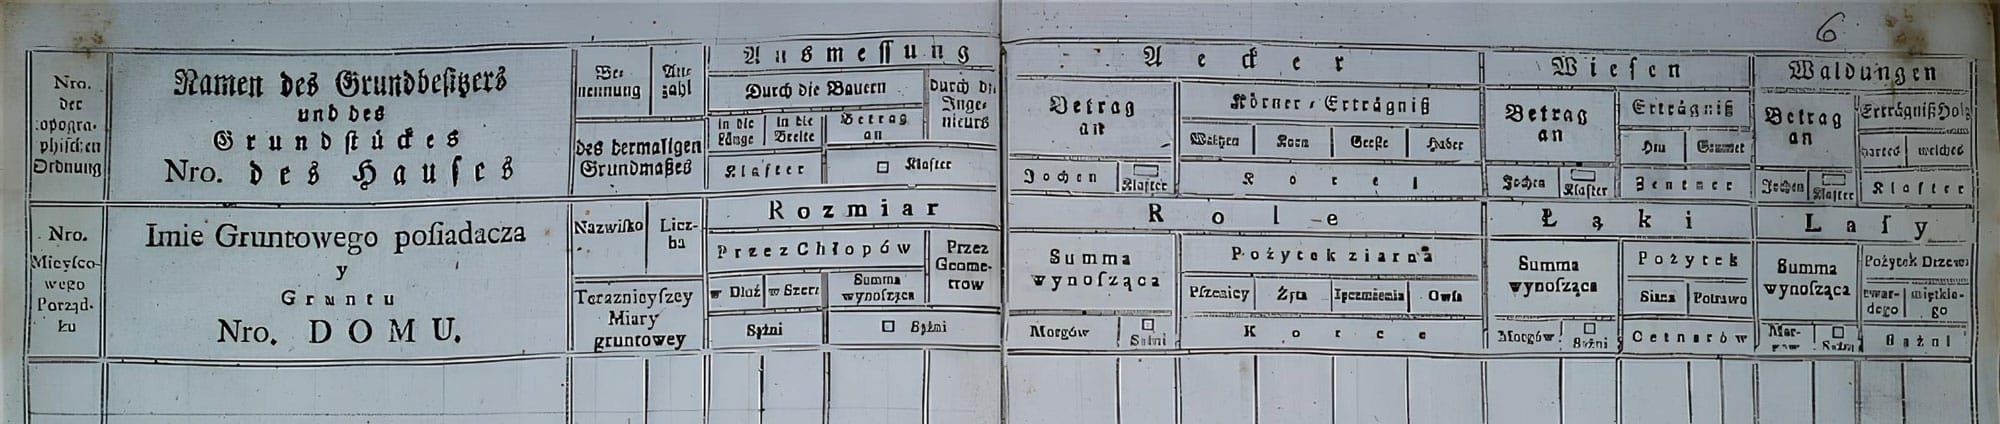 6
Nro.
der
topogra-
phischen
Ordnung
Namen des Grundbesitzers
und des
Grundstückes
Nro. des Hauses
Be-
nennung
An-
zahl
des dermaligen
Grundmaßes
Ausmessung
Durch die Bauern
in die
Länge
in die
Breite
Betrag
an
Durch die
Inge-
nieurs
Klafter
□ Klafter
Aecker
Betrag
an
Körner-Erträgniß
Waitzen
Korn
Gerste
Haber
Jochen
□
Klafter
Korez
Wiesen
Betrag
an
Erträgniß
Heu
Grummet
Jochen
□
Klafter
Zentner
Waldungen
Betrag
an
Erträgniß Holz
hartes
weiches
Jochen
□
Klafter
Klafter
Nro.
Mieysco-
wego
Porząd-
ku
Imie Gruntowego posiadacza
y
Gruntu
Nro. DOMU.
Nazwisko
Licz-
ba
Teraznieyszey
Miary
gruntowey
Rozmiar
Przez Chłopów
w Dłuż
w Szerz
Summa
wynosząca
Przez
Geome-
trow
Sążni
□ Sążni
Role
Summa
wynosząca
Pożytek ziarna
Pszenicy
Żyta
Ięczmienia
Owsa
Morgów
□
Sążni
Korce
Łąki
Summa
wynosząca
Pożytek
Siana
Potrawu
Morgów
□
Sążni
Cetnarów
Lasy
Summa
wynosząca
Pożytek Drzewa
twar-
dego
miętkie-
go
Mor-
gow
□
Sążni
Sążni